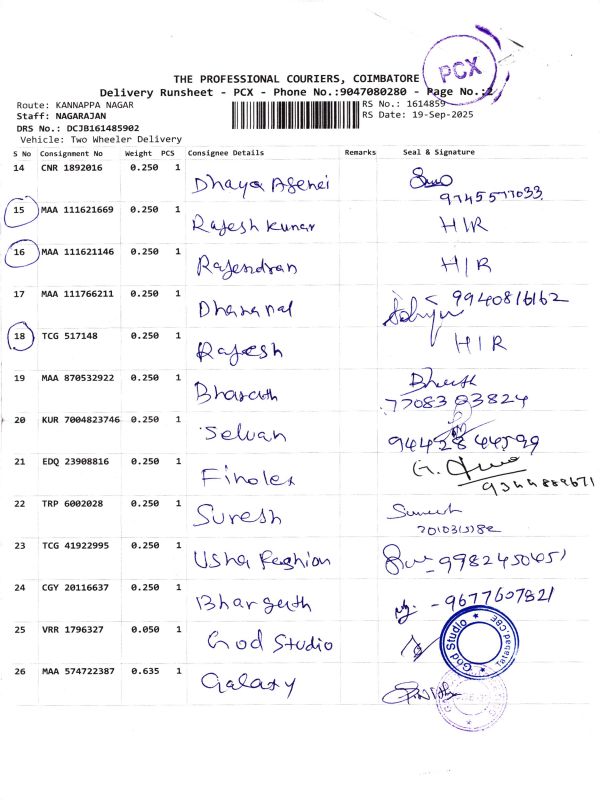 PCX
THE PROFESSIONAL COURIERS, COIMBATORE
Delivery Runsheet - PCX - Phone No.:9047080280 - Page No.:2
Route: KANNAPPA NAGAR
RS No.: 1614859
Staff: NAGARAJAN
RS Date: 19-Sep-2025
DRS No.: DCJB161485902
Vehicle: Two Wheeler Delivery
S No Consignment No Weight PCS Consignee Details Remarks Seal & Signature
14 CNR 1892016 0.250 1 Dhaya Agenei 9745577033
15 MAA 111621669 0.250 1 Rajesh Kumar H/R
16 MAA 111621146 0.250 1 Rajendran H/R
17 MAA 111766211 0.250 1 Dhanapal 9940816162
18 TCG 517148 0.250 1 Rajesh H/R
19 MAA 870532922 0.250 1 Bharath 7708303824
20 KUR 7004823746 0.250 1 Selvan 9442844599
21 EDQ 23908816 0.250 1 Finolex
22 TRP 6002028 0.250 1 Suresh Suresh
23 TCG 41922995 0.250 1 Usha Fashion 9982450451
24 CGY 20116637 0.250 1 Bhargath - 9677607821
25 VRR 1796327 0.050 1 God Studio God Studio Tatabad,CBE
26 MAA 574722387 0.635 1 Galaxy